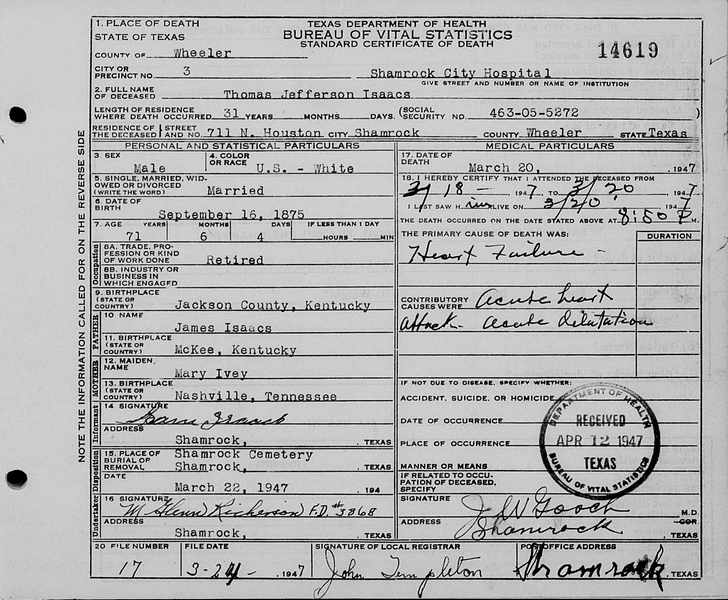 TEXAS DEPARTMENT OF HEALTH
BUREAU OF VITAL STATISTICS
STANDARD CERTIFICATE OF DEATH
14619
1. PLACE OF DEATH
STATE OF TEXAS
COUNTY OF Wheeler
CITY OR PRECINCT NO. 3 Shamrock City Hospital
GIVE STREET AND NUMBER OR NAME OF INSTITUTION
2. FULL NAME OF DECEASED Thomas Jefferson Isaacs
LENGTH OF RESIDENCE WHERE DEATH OCCURRED 31 YEARS MONTHS DAYS. (SOCIAL SECURITY NO. 463-05-5272 )
RESIDENCE OF THE DECEASED { STREET AND NO. 711 N. Houston CITY Shamrock COUNTY Wheeler STATE Texas
NOTE THE INFORMATION CALLED FOR ON THE REVERSE SIDE
PERSONAL AND STATISTICAL PARTICULARS
3. SEX Male
4. COLOR OR RACE U.S. - White
5. SINGLE, MARRIED, WIDOWED OR DIVORCED (WRITE THE WORD) Married
6. DATE OF BIRTH September 16, 1875
7. AGE YEARS MONTHS DAYS IF LESS THAN 1 DAY
71 6 4 HOURS MIN
Occupation
8A. TRADE, PROFESSION OR KIND OF WORK DONE Retired
8B. INDUSTRY OR BUSINESS IN WHICH ENGAGED
9. BIRTHPLACE (STATE OR COUNTRY) Jackson County, Kentucky
FATHER
10 NAME James Isaacs
11. BIRTHPLACE (STATE OR COUNTRY) McKee, Kentucky
MOTHER
12. MAIDEN NAME Mary Ivey
13. BIRTHPLACE (STATE OR COUNTRY) Nashville, Tennessee
Informant
14 SIGNATURE
ADDRESS Shamrock, , TEXAS
Disposition
15. PLACE OF BURIAL OR REMOVAL Shamrock Cemetery
Shamrock, , TEXAS
DATE March 22, 1947 , 194
Undertaker
16 SIGNATURE M Glenn Richerson F.D. #3868
ADDRESS Shamrock, , TEXAS
MEDICAL PARTICULARS
17. DATE OF DEATH March 20, , 1947
18. I HEREBY CERTIFY THAT I ATTENDED THE DECEASED FROM
3/18 - 1947 TO 3/20 1947
I LAST SAW H im ALIVE ON 3/20 , 1947
THE DEATH OCCURRED ON THE DATE STATED ABOVE AT 8:50 P. M.
THE PRIMARY CAUSE OF DEATH WAS: DURATION
Heart Failure -
CONTRIBUTORY CAUSES WERE Acute heart
Attack - Acute Dilatation
IF NOT DUE TO DISEASE, SPECIFY WHETHER:
ACCIDENT, SUICIDE, OR HOMICIDE
DATE OF OCCURRENCE
PLACE OF OCCURRENCE
MANNER OR MEANS
IF RELATED TO OCCUPATION OF DECEASED, SPECIFY
DEPARTMENT OF HEALTH
RECEIVED
APR 12 1947
TEXAS
BUREAU OF VITAL STATISTICS
SIGNATURE J W Gooch M.D.
COR.
ADDRESS Shamrock , TEXAS
20 FILE NUMBER FILE DATE SIGNATURE OF LOCAL REGISTRAR POST OFFICE ADDRESS
17 3-24- 1947 John Templeton Shamrock , TEXAS